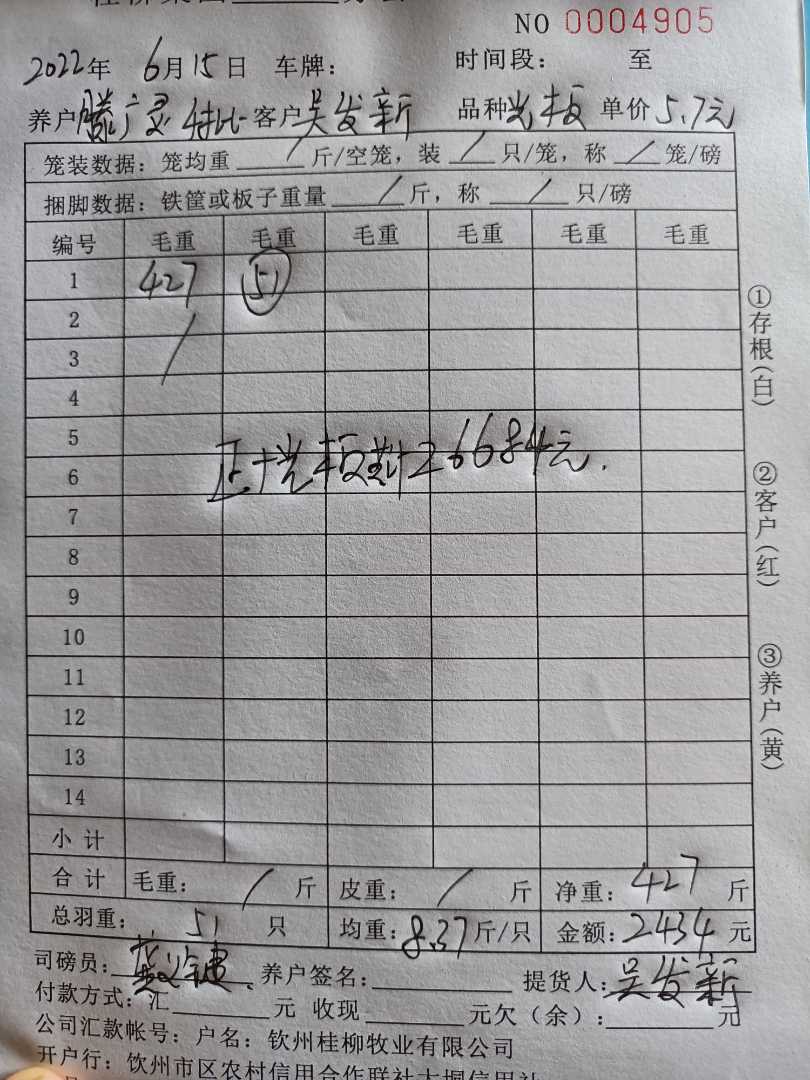 NO 0004905
2022年 6月15日 车牌： 时间段： 至
养户 滕广灵 特比 客户 吴发新 品种 光板 单价 5.7元
笼装数据：笼均重 / 斤/空笼，装 / 只/笼，称 / 笼/磅
捆脚数据：铁筐或板子重量 / 斤，称 / 只/磅
编号 毛重 毛重 毛重 毛重 毛重 毛重
1 427 51
2 /
3
4
5
正十光板 计26684元.
6
7
8
9
10
11
12
13
14
小计
合计 毛重： / 斤 皮重： / 斤 净重：427 斤
总羽重：51 只 均重：8.37斤/只 金额：2434 元
司磅员： 养户签名： 提货人：吴发新
付款方式：汇 元 收现 元欠（余）： 元
公司汇款帐号：户名：钦州桂柳牧业有限公司
开户行：钦州市区农村信用合作联社大垌信用社
①存根（白）
②客户（红）
③养户（黄）